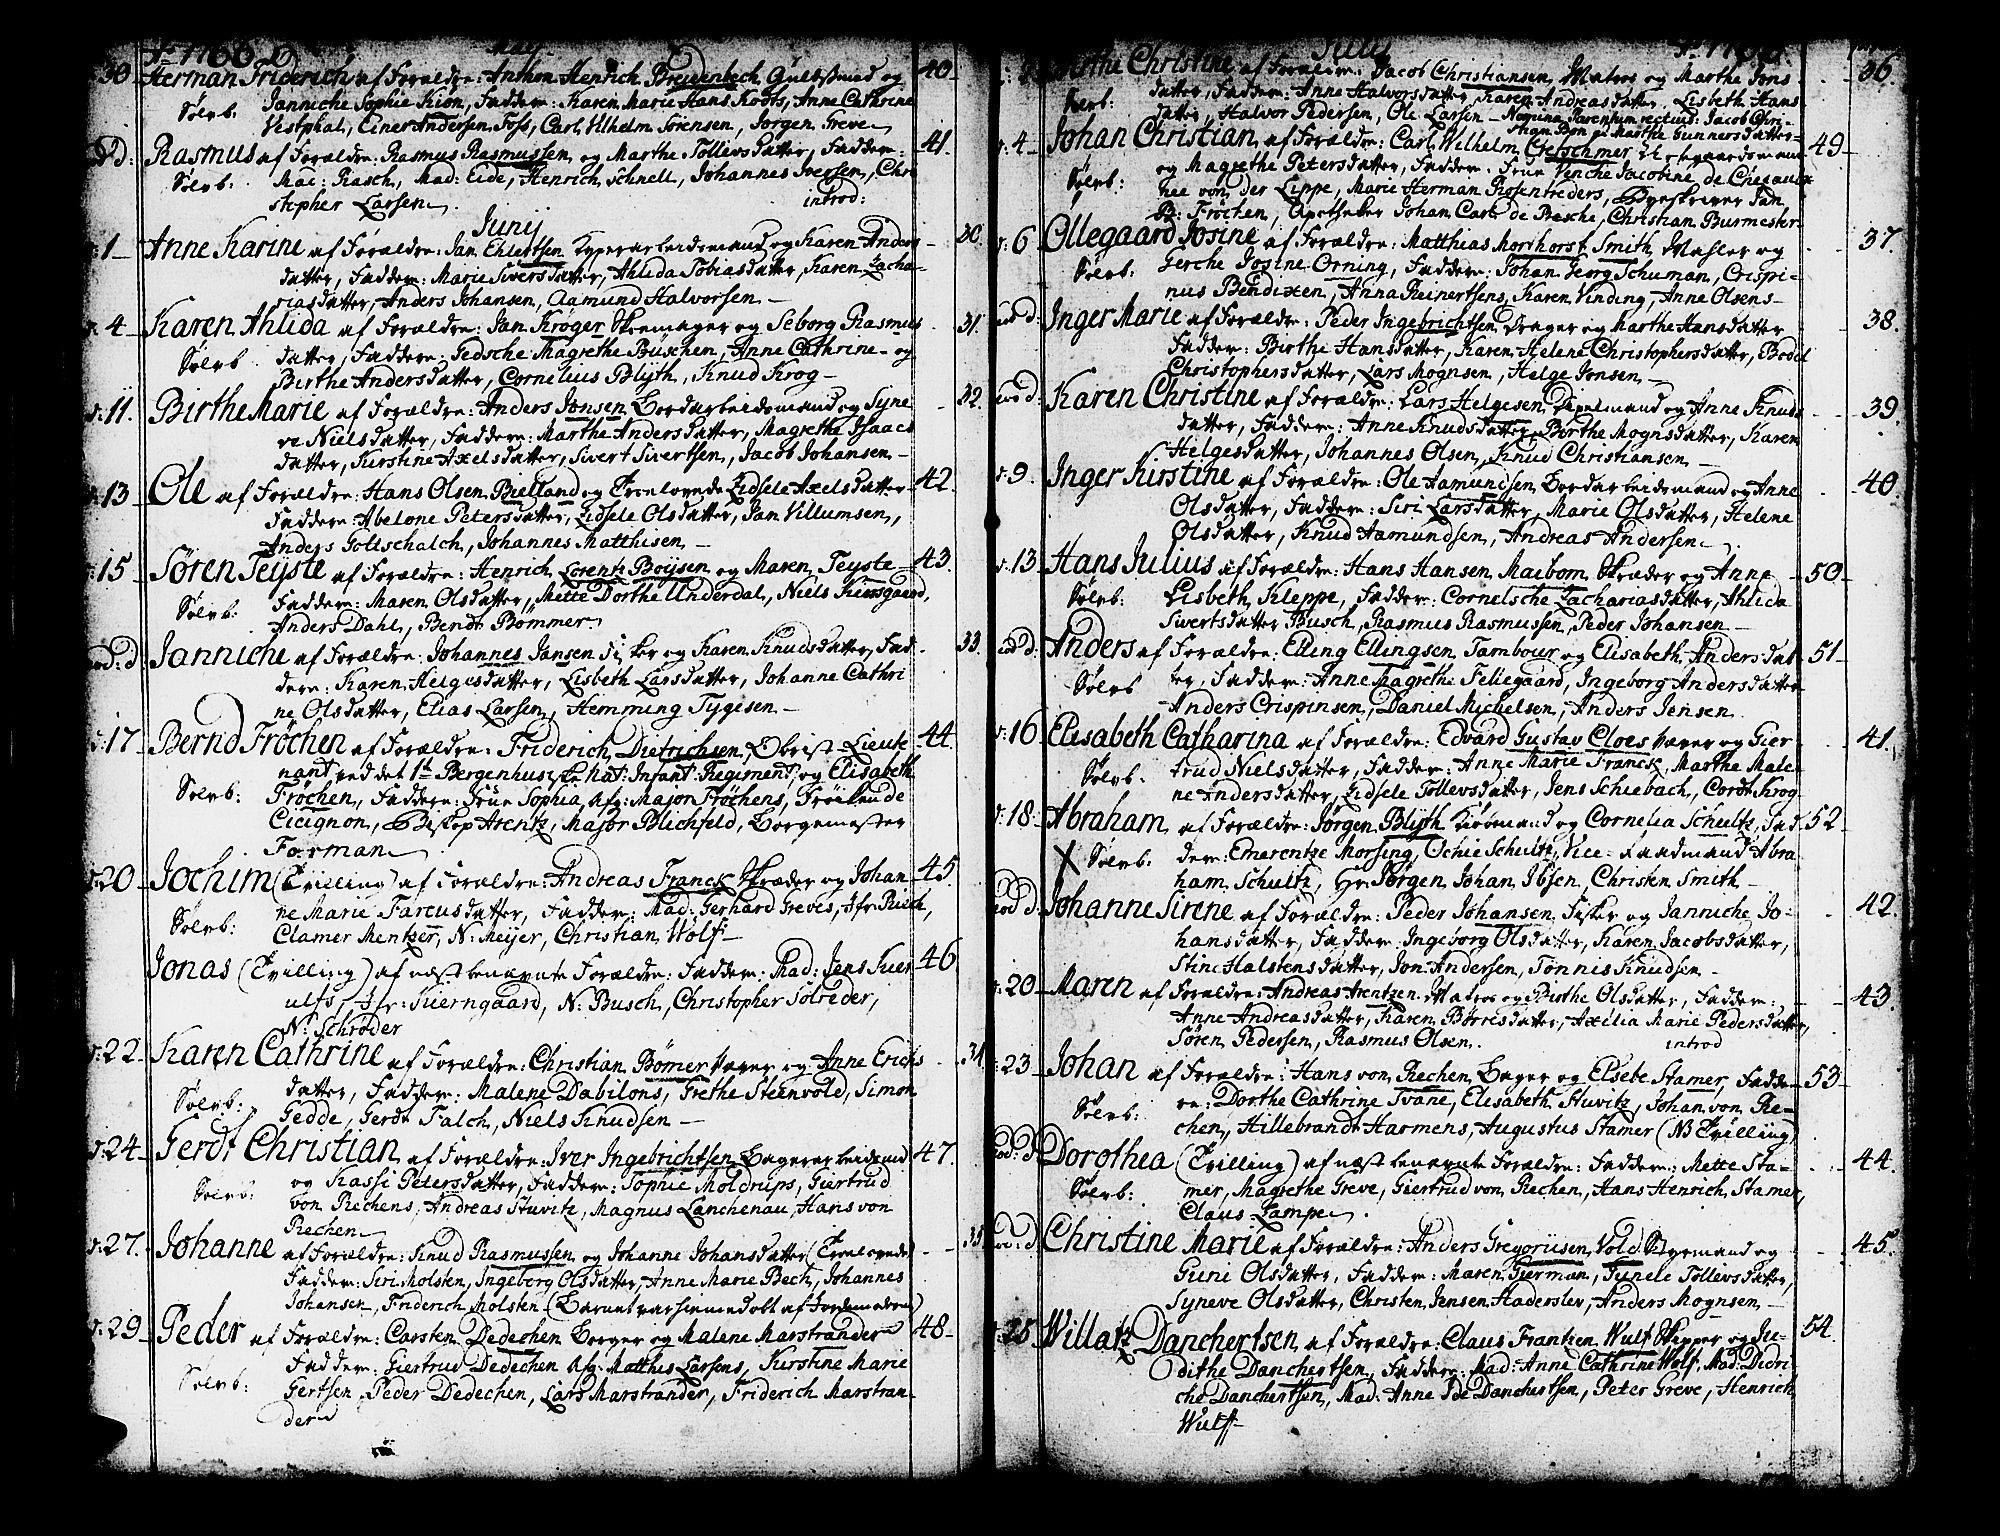 Ao 1766. May.
30 Herman Friderich af Forældre: Anthon Henrich Breydenbech Guldsmed og 40.
Sølvb: Janniche Sophie Kiøn, Faddere: Karen Marie Hans Kodts, Anne Cathrine
Vestphal, Einer Andersen Foss, Carl Vilhelm Sørensen, Jørgen Greve
eod: Rasmus af Forældre: Rasmus Rasmussen og Marthe Tollevsdatter, Faddere: 41.
Sølvb: Mad: Rasch, Mad: Eide, Henrich Schnell, Johannes Iversen, Chri
stopher Larsen introd:
Junij
d: 1 Anne Karine af Forældre: Jan Ehlertsen Kypperarbeidsmand og Karen Anders 30.
datter, Faddere: Marie Siversdatter, Ahlida Tobiasdatter, Karen Zacha-
riasdatter, Anders Johansen, Aamund Halvorsen
d. 4 Karen Ahlida af Forældre: Jan Krøger Skomager og Seborg Rasmus 31.
Sølvb datter, Faddere: Gedsche Magrethe Büschen, Anne Cathrine og
Birthe Andersdatter, Cornelius Blyth, Knud Krog
d: 11. Birthe Marie af Forældre: Anders Jonsen Bordarbeidsmand og Syne 32.
ve Nielsdatter, Faddere: Marthe Andersdatter, Magrethe Isaacs
datter, Kirstine Axelsdatter, Sivert Sivertsen, Jacob Johansen
d: 13 Ole af Forældre: Hans Olsen Bielland og Troelovede Zidsele Axelsdatter 42
Faddere: Abelone Petersdatter, Zidsele Olsdatter, Jan Villumsen,
Anders Gottschalch, Johannes Matthisen
d: 15 Søren Teyste af Forældre: Henrich Lorentz Boysen og Maren Teyste 43.
Sølvb: Faddere: Maren Olsdatter, Mette Dorthe Underdal, Niels Kiersgaard,
Anders Dahl, Bendt Bommer
eod: d Janniche af Forældre: Johannes Jansen Fisker og Karen Knudsdatter, Fad 33.
dere: Karen Helgesdatter, Lisbeth Larsdatter, Johanne Cathri
ne Olsdatter, Elias Larsen, Hemming Tygesen
d: 17 Bernd Frøchen af Forældre: Friderich Dietrichsen, Obrist-Lieute 44.
nant ved det 1ste Bergenhusiske nat: Infant: Regiment, og Elisabeth
Sølvb: Frøchen, Faddere: Frue Sophia afg: Major Frøchens, Frøiken de
Cicignon, Biskop Arentz, Major Blichfeld, Borgemester
Forman
d: 20 Jochim (Tvilling) af Forældre: Andreas Franck Skræder og Johan 45.
ne Marie Farcusdatter, Faddere: Mad: Gerhard Greves, Jfr: Rieck,
Sølvb: Clamer Mentzer, N: Meijer, Christian Wolf
Jonas (Tvilling) af næstbenævnte Forældre: Faddere: Mad: Jens Kier 46.
ulfs, Jfr: Kierngaard, N: Busch, Christopher Solreder,
N: Schrøder
d: 22 Karen Cathrine af Forældre: Christian Bømer Væver og Anne Erichs 34
Sølvb: datter, Faddere: Malene Dabilons, Grethe Steenvold, Simon
Gedde, Gerdt Falch, Niels Knudsen
d: 24 Gerdt Christian af Forældre: Iver Ingebrichtsen Bagerarbeidsmd 47.
Sølvb: og Kassi Petersdatter, Faddere: Sophie Moldrups, Giertrud
von Rechens, Andreas Stuvitz, Magnus Lanchenau, Hans von
Rechen
d: 27. Johanne af Forældre: Knud Rasmussen og Johanne Johansdatter (Troelovede) 35
Faddere: Siri Molsten, Ingeborg Olsdatter, Anne Marie Bech, Johannes
Johansen, Friderich Molsten (Barnet var hiemmedøbt af Jordemoderen)
d: 29 Peder af Forældre: Carsten Dedechen Borger og Malene Marstrander 48
Faddere: Giertrud Dedechen afg: Matthis Larsens, Kirstine Marie
Sølvb: Gertsen, Peder Dedechen, Lars Marstrander, Friderich Marstran-
der
Julij Ao 1766
Birthe Christine af Forældre: Jacob Christiansen Matros og Marthe Jons 36
Sølvb: datter, Faddere: Anne Halvorsdatter, Karen Andreasdatter, Lisbeth Hans
datter, Halvor Pedersen, Ole Larsen - Nomina Parentum rectius: Jacob Chri-
d. 4 Johan Christian af Forældre: Carl Wilhelm Gretschmer 49
og Magrethe Petersdatter, Faddere: Frue Venche Jacobine de Chesaug
Sølvb: nee von der Lippe, Marie Herman Rosentreders, Byeskriver Jan
B: Frøchen, Apotheker Johan Carl de Besche, Christian Burmester
d: 6 Ollegaard Josine af Forældre: Matthias Morthorst Smith, Matler og 37.
Sølvb: Gerche Josine Orning, Faddere: Johan Georg Schuman, Crispi-
nus Bendixen, Anna Reinertsens, Karen Vinding, Anne Olsens
eod d: Inger Marie af Forældre: Peder Ingebrichtsen Drager og Marthe Hansdatter 38.
Faddere: Birthe Hansdatter, Karen Helene Christophersdatter, Bodel
Christophersdatter, Lars Mognsen, Helge Jonsen
eod d: Karen Christine af Forældre: Lars Helgesen og Anne Knuds 39
datter, Faddere: Anne Knudsdatter, Birthe Mognsdatter, Karen
Helgesdatter, Johannes Olsen, Knud Christiansen
d: 9. Inger Kirstine af Forældre: Ole Aamundsen Bordarbeidsmand og Anne 40.
Olsdatter, Faddere: Siri Larsdatter, Marie Olsdatter, Helene
Olsdatter, Knud Aamundsen, Andreas Andersen
d: 13 Hans Julius af Forældre: Hans Hansen Maibom Skræder og Anne 50
Sølvb: Lisbeth Kleppe, Faddere: Cornelsche Zachariasdatter, Ahlida
Sivertsdatter Busch, Rasmus Rasmussen, Peder Johansen
eod d: Anders af Forældre: Elling Ellingsen Tambour og Elisabeth Andersdat 51
Sølvb ter, Faddere: Anne Magrethe Feliegaard, Ingeborg Andersdatter
Anders Crispinsen, Daniel Michelsen, Anders Jensen
d: 16 Elisabeth Catharina af Forældre: Edvard Gustav Cloes Væver og Gier 41.
Sølvb. trud Nielsdatter, Faddere: Anne Marie Franck, Marthe Male-
ne Andersdatter, Zidsele Tollevsdatter, Jens Schiebach, Cordt Krog
d: 18 Abraham af Forældre: Jørgen Blyth Kiøbmand og Cornelia Schultz, Fad 52
X Sølvb: dere: Emerentze Morsing, Ochie Schultz, Vice-Raadmand Abra
ham Schultz, Hr: Jørgen Johan Ibsen, Christen Smith
eod d Johanne Sirene af Forældre: Peder Johansen, Fisker og Janniche Jo- 42.
hansdatter, Faddere: Ingeborg Olsdatter, Karen Jacobsdatter,
Stine Halstensdatter, Jon Andersen, Tønnis Knudsen
d: 20 Maren af Forældre: Andreas Arentzen Matros og Birthe Olsdatter, Faddere: 43.
Anne Andreasdatter, Karen Børresdatter, Axelia Marie Pedersdatter,
Søren Pedersen, Rasmus Olsen introd
d: 23 Johan af Forældre: Hans von Rechen Bager og Elsebe Stamer, Fadde 53
Sølvb: re: Dorthe Cathrine Tvane, Elisabeth Stuvitz, Johan von Re-
chen, Hillebrandt Harmens, Augustus Stamer (NB Tvilling)
eod: d Dorothea (Tvilling) af næstbenævnte Forældre: Faddere: Mette Sta- 44.
Sølvb: mer, Magrethe Greve, Giertrud von Rechen, Hans Henrich Stamer,
Claus Lampe
eod: d Christine Marie af Forældre: Anders Gregoriisen Vold Styrmand og 45.
Guni Olsdatter, Faddere: Maren Gierman, Gunele Tollevsdatter,
Syneve Olsdatter, Christen Jensen Haderslev, Anders Mognsen
d: 25 Willatz Danchertsen af Forældre: Claus Frantzen Wulf Skipper og Ju- 54.
dithe Danchertsen, Faddere: Mad: Anne Cathrine Wolf, Mad: Didri-
che Danchertsen, Mad: Anne Danchertsen, Peter Greve, Henrich
Wulf